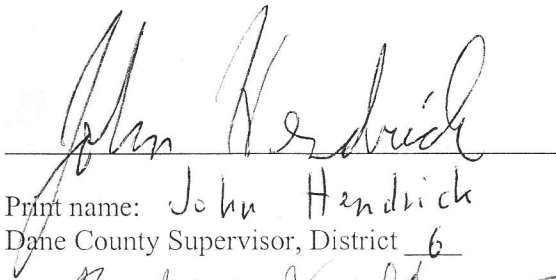 John Hendrick
Print name: John Hendrick
Dane County Supervisor, District 6